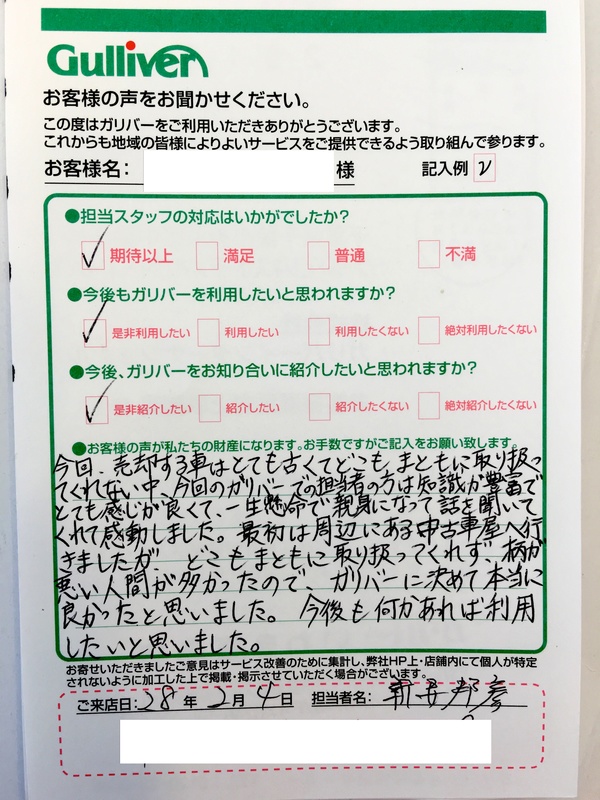 Gulliver
お客様の声をお聞かせください。
この度はガリバーをご利用いただきありがとうございます。
これからも地域の皆様によりよいサービスをご提供できるよう取り組んで参ります。
お客様名： 様 記入例
●担当スタッフの対応はいかがでしたか？
期待以上 満足 普通 不満
●今後もガリバーを利用したいと思われますか？
是非利用したい 利用したい 利用したくない 絶対利用したくない
●今後、ガリバーをお知り合いに紹介したいと思われますか？
是非紹介したい 紹介したい 紹介したくない 絶対紹介したくない
●お客様の声が私たちの財産になります。お手数ですがご記入をお願い致します。
今回、売却する車はとても古くてどこもまともに取り扱っ
てくれない中、今回のガリバーでの担当者の方は知識が豊富で
とても感じが良くて、一生懸命で親身になって話を聞いて
くれて感動しました。最初は周辺にある中古車屋へ行
きましたが、どこもまともに取り扱ってくれず、柄が
悪い人間が多かったので、ガリバーに決めて本当に
良かったと思いました。今後も何かあれば利用
したいと思いました。
お寄せいただきましたご意見はサービス改善のために集計し、弊社HP上・店舗内にて個人が特定
されないように加工した上で掲載・掲示させていただく場合がございます。
ご来店日：28年2月4日 担当者名：